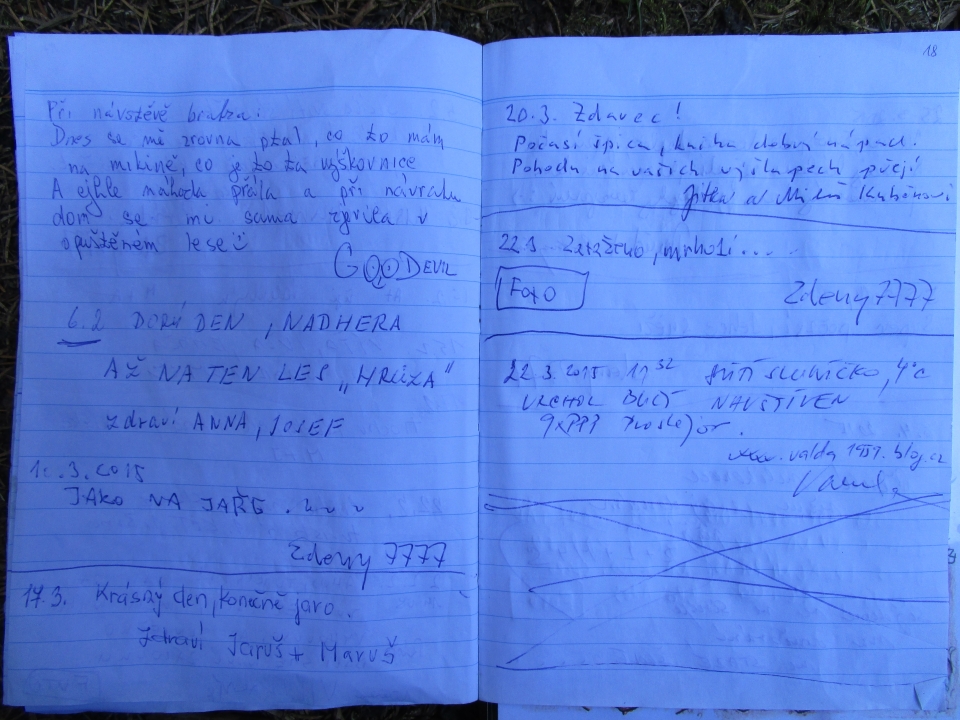 Při návštěvě bratra:
Dnes se mě zrovna ptal, co to mám
na mikině, co je to ta výškovnice
A ejhle náhoda přála a při návratu
dom se mu sama zjevila v
opuštěném lese
GOODEVIL
6.2 DOBRÝ DEN, NADHERA
AŽ NA TEN LES "HRŮZA"
Zdraví ANNA, JOSEF
.3.2015
JAKO NA JAŘE . . .
Zdeny7777
17.3. Krásný den, konečně jaro.
Zdraví Jaruš + Maruš
18
20.3. Zdavec!
Počasí špica, kniha dobrý nápad.
Pohodu na vašich výšlapech přejí
Jitka a Miloš
22.3 Zataženo, mrholí...
FOTO
Zdeny7777
22.3.2015 11 32 SVÍTÍ SLUNÍČKO, 4°C
VRCHOL NAVŠTÍVEN
Prostějov.
www.valda1951.blog.cz